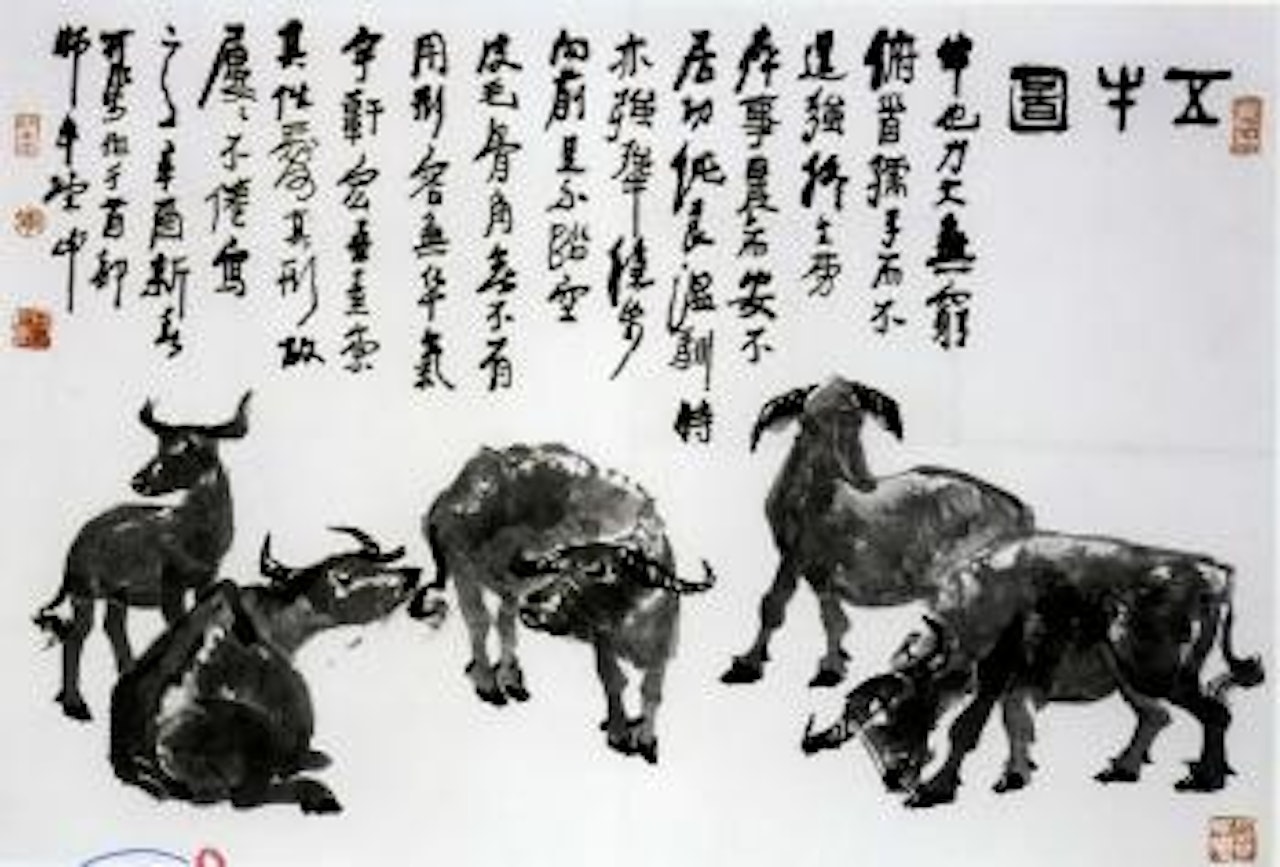 五牛圖
牛也力大無窮
俯首孺子而不
逞強終生勞
瘁事農而安不
居功純良溫馴時
亦強犟穩步
向前足不踏空
皮毛骨角無不有
用形容無華氣
宇軒宏
其性愛其形故
屢屢不倦寫
之辛酉新春
可染作于首都
師牛堂中